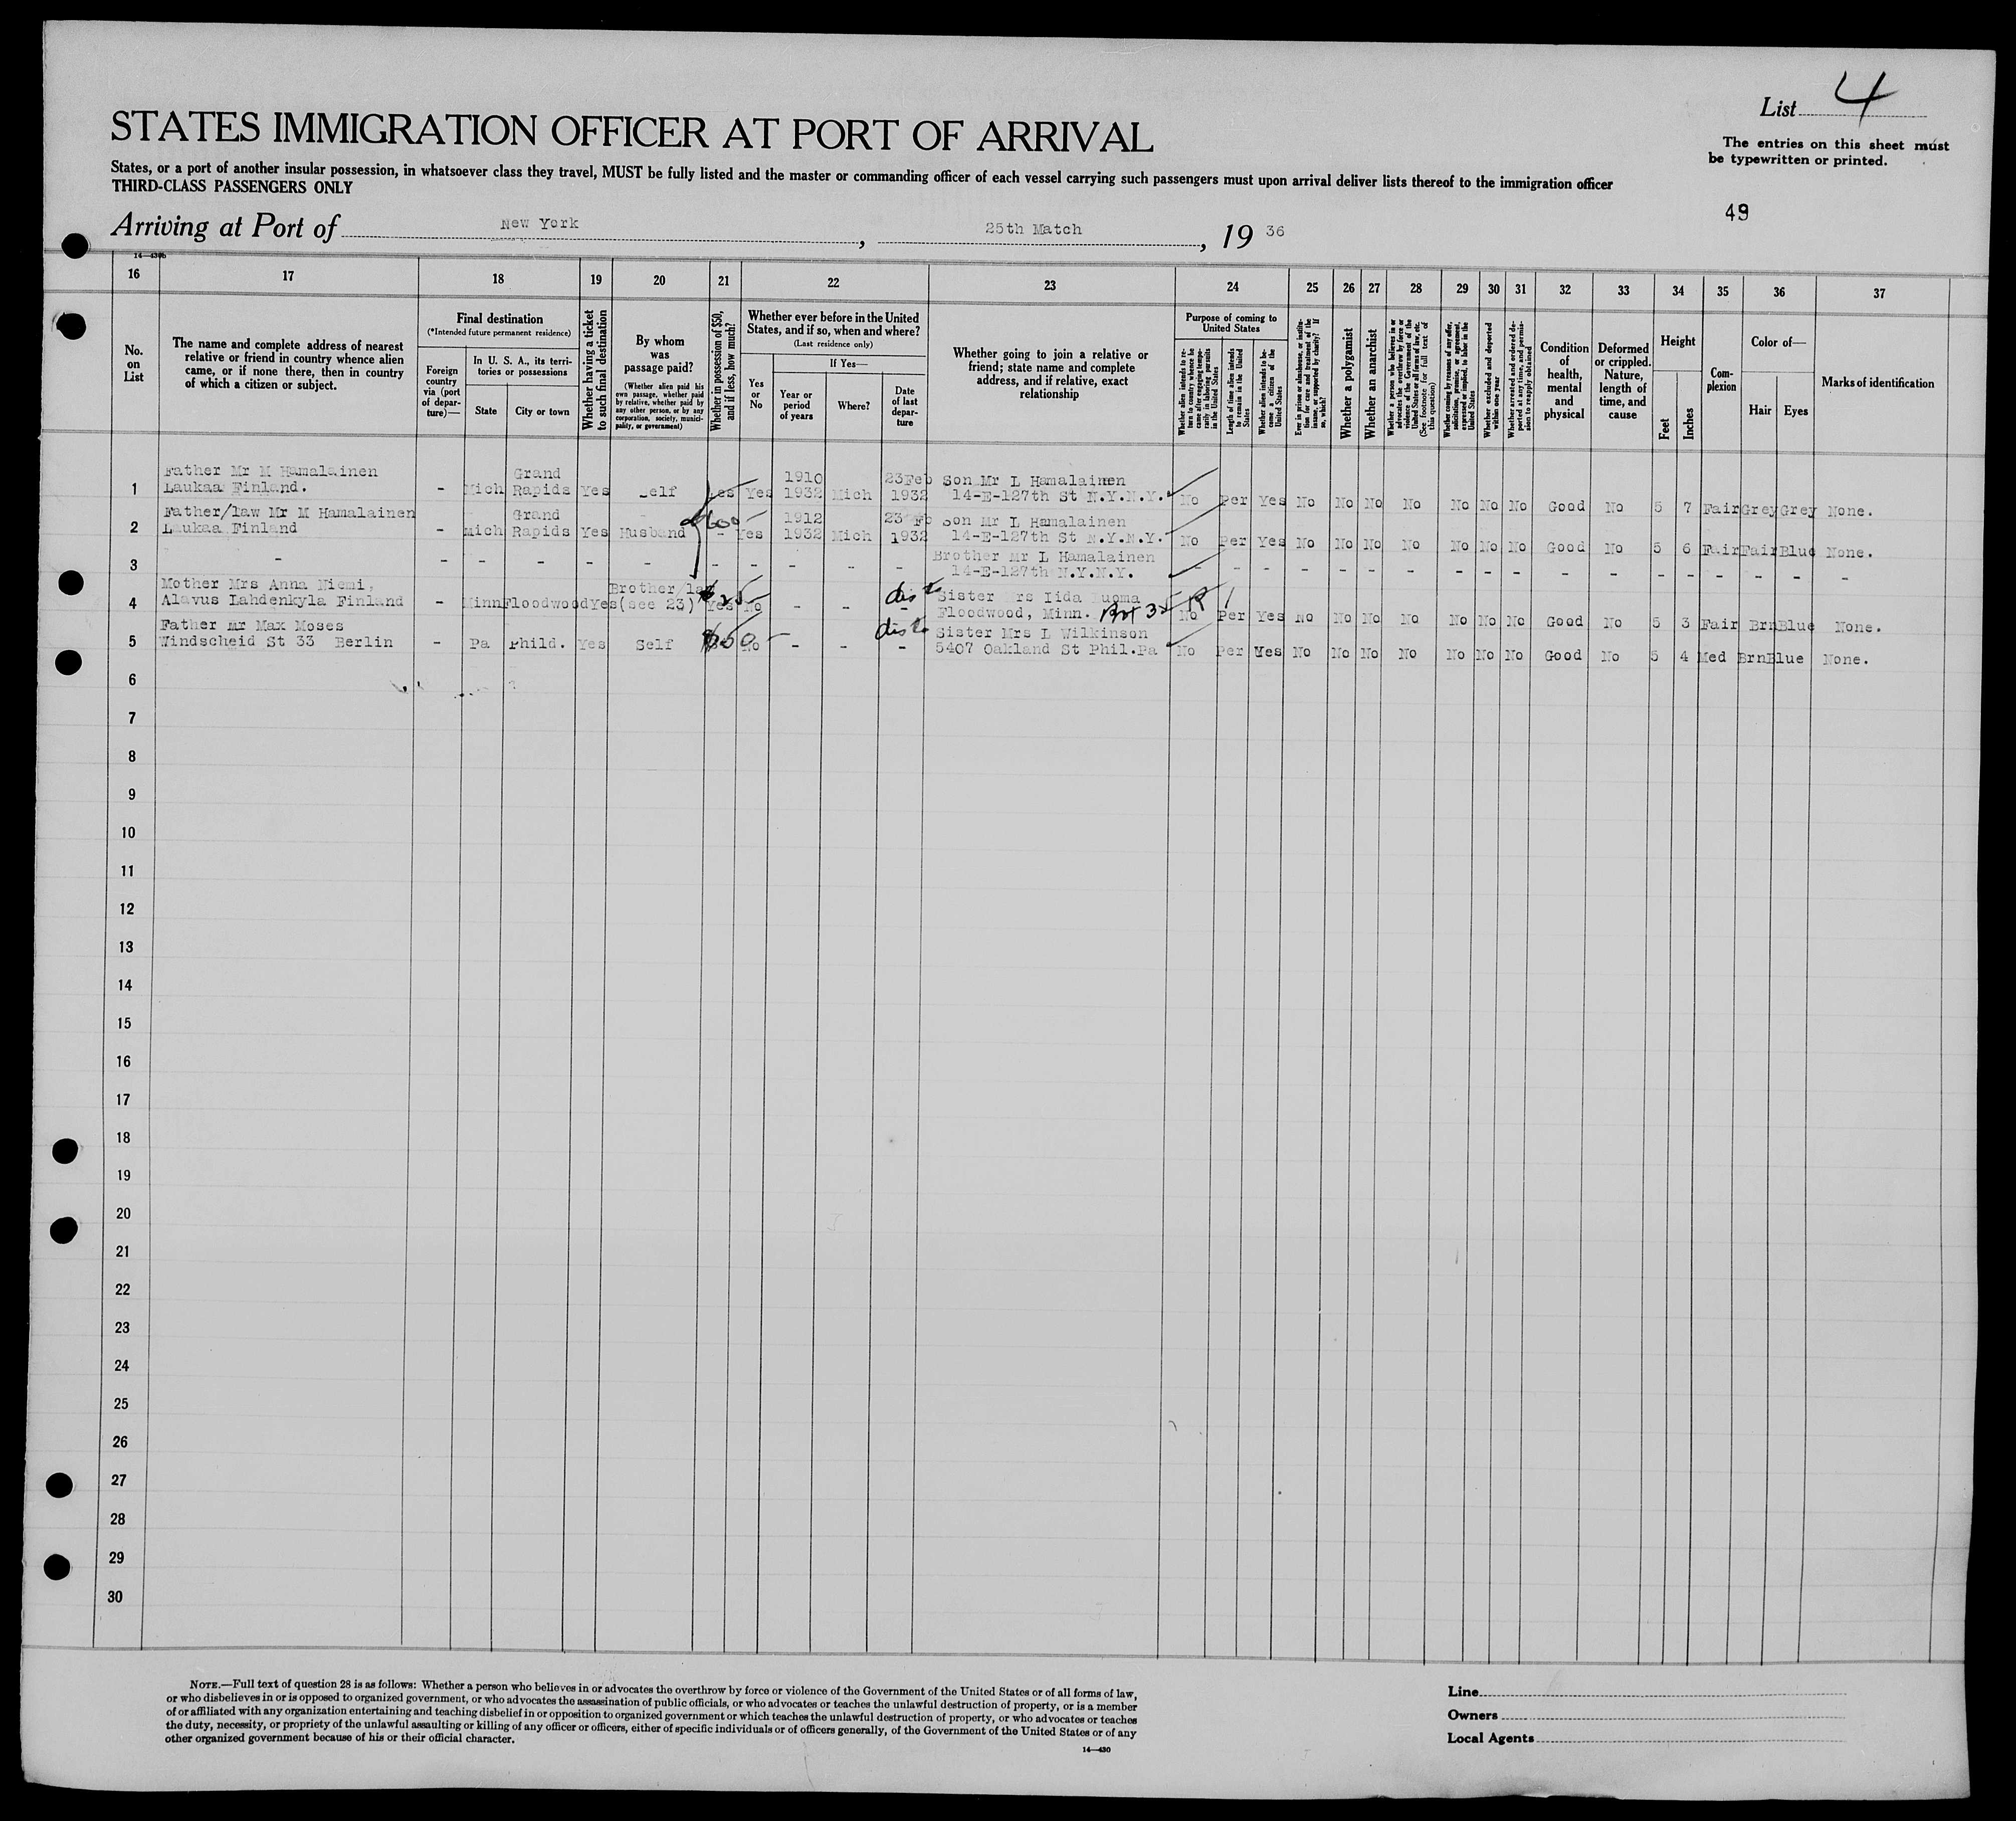 List 4
STATES IMMIGRATION OFFICER AT PORT OF ARRIVAL
The entries on this sheet must
be typewritten or printed.
States, or a port of another insular possession, in whatsoever class they travel, MUST be fully listed and the master or commanding officer of each vessel carrying such passengers must upon arrival deliver lists thereof to the immigration officer
THIRD-CLASS PASSENGERS ONLY
49
Arriving at Port of New York, 25th Match, 19 36
16 17 18 19 20 21 22 23 24 25 26 27 28 29 30 31 32 33 34 35 36 37
No. on List
The name and complete address of nearest
relative or friend in country whence alien
came, or if none there, then in country
of which a citizen or subject.
Final destination
(*Intended future permanent residence)
Foreign country via (port of departure)—
In U. S. A., its territories or possessions
State
City or town
Whether having a ticket to such final destination
By whom was passage paid?
(Whether alien paid his own passage, whether paid by relative, whether paid by any other person, or by any corporation, society, municipality, or government)
Whether in possession of $50, and if less, how much?
Whether ever before in the United States, and if so, when and where?
(Last residence only)
Yes or No
If Yes—
Year or period of years
Where?
Date of last departure
Whether going to join a relative or
friend; state name and complete
address, and if relative, exact
relationship
Purpose of coming to United States
Whether alien intends to return to country whence he came after engaging temporarily in laboring pursuits in the United States
Length of time alien intends to remain in the United States
Whether alien intends to become a citizen of the United States
Ever in prison or almshouse, or institution for care and treatment of the insane, or supported by charity? If so, which?
Whether a polygamist
Whether an anarchist
Whether a person who believes in or advocates the overthrow by force or violence of the Government of the United States or all forms of law, etc. (See footnote for full text of this question)
Whether coming by reasons of any offer, solicitation, promise, or agreement, expressed or implied, to labor in the United States
Whether excluded and deported within one year
Whether arrested and ordered deported at any time, and permission to reapply obtained
Condition of health, mental and physical
Deformed or crippled. Nature, length of time, and cause
Height
Feet
Inches
Complexion
Color of—
Hair
Eyes
Marks of identification
Father Mr M Hamalainen Grand 1910 23Feb Son Mr L Hamalainen
1 Laukaa Finland. - Mich Rapids Yes Self Yes Yes 1932 Mich 1932 14-E-127th St N.Y.N.Y. No Per Yes No No No No No No No Good No 5 7 Fair Grey Grey None.
Father/law Mr M Hamalainen Grand $600 1912 23 Fb Son Mr L Hamalainen
2 Laukaa Finland - Mich Rapids Yes Husband - Yes 1932 Mich 1932 14-E-127th St N.Y.N.Y. No Per Yes No No No No No No No Good No 5 6 Fair Fair Blue None.
Brother Mr L Hamalainen
3 - - - - - - - - - - - 14-E-127th N.Y.N.Y. - - - - - - - - - - - - - - - - - -
Mother Mrs Anna Niemi, Brother/la $25 dis to Sister Mrs Iida Luoma
4 Alavus Lahdenkyla Finland - Minn Floodwood Yes (see 23) Yes No - - - Floodwood, Minn. Box 35 R 1 No Per Yes No No No No No No No Good No 5 3 Fair Brn Blue None.
Father Mr Max Moses $50 dis to Sister Mrs L Wilkinson
5 Windscheid St 33 Berlin - Pa Phild. Yes Self No - - - 5407 Oakland St Phil.Pa No Per Yes No No No No No No No Good No 5 4 Med Brn Blue None.
6
7
8
9
10
11
12
13
14
15
16
17
18
19
20
21
22
23
24
25
26
27
28
29
30
NOTE.—Full text of question 28 is as follows: Whether a person who believes in or advocates the overthrow by force or violence of the Government of the United States or of all forms of law,
or who disbelieves in or is opposed to organized government, or who advocates the assassination of public officials, or who advocates or teaches the unlawful destruction of property, or is a member
of or affiliated with any organization entertaining and teaching disbelief in or opposition to organized government or which teaches the unlawful destruction of property, or who advocates or teaches
the duty, necessity, or propriety of the unlawful assaulting or killing of any officer or officers, either of specific individuals or of officers generally, of the Government of the United States or of any
other organized government because of his or their official character.
14—430
Line
Owners
Local Agents